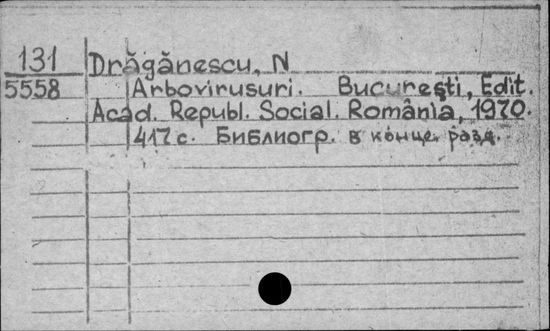 131 Drăgănescu, N
5558 Arbovirusuri. Bucureşti, Edit.
Acad. Republ. Social. România, 1970.
417 с. Библиогр. в конце разд.